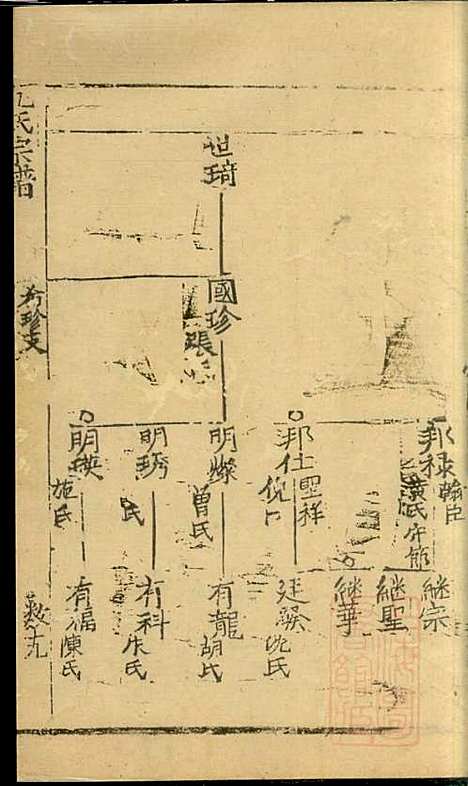 世琦
國珍
張
邦祿 翰臣
黃氏守節
邦仕 聖祥
倪氏
明燦
曾氏
明琇
氏
明瑛
施氏
繼宗
繼聖
繼華
廷
沈氏
有龍
胡氏
有科
朱氏
有福
陳氏
氏宗譜
希珍支